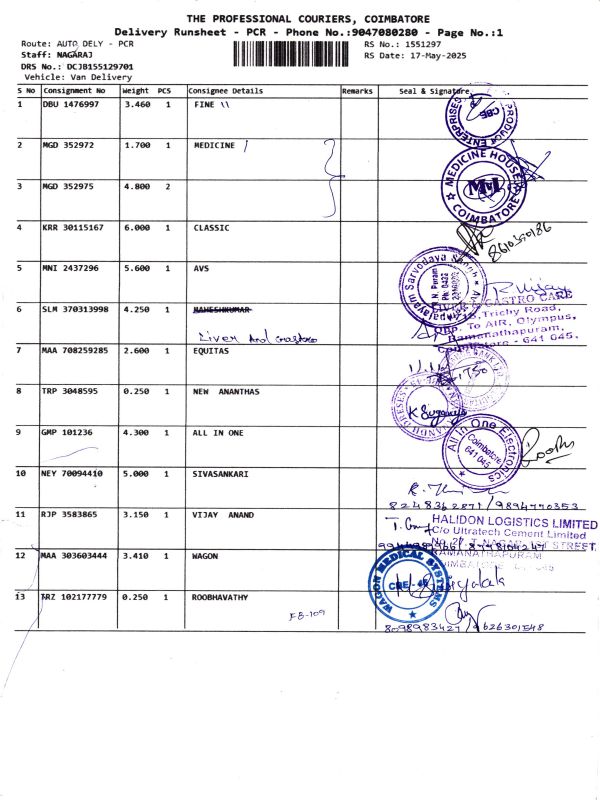 THE PROFESSIONAL COURIERS, COIMBATORE
Delivery Runsheet - PCR - Phone No.:9047080280 - Page No.:1
Route: AUTO DELY - PCR
RS No.: 1551297
Staff: NAGARAJ
RS Date: 17-May-2025
DRS No.: DCJB155129701
Vehicle: Van Delivery
S No Consignment No Weight PCS Consignee Details Remarks Seal & Signature
1 DBU 1476997 3.460 1 FINE
ENTERPRISES CBE
2 MGD 352972 1.700 1 MEDICINE
MEDICINE HOUSE COIMBATORE
3 MGD 352975 4.800 2
4 KRR 30115167 6.000 1 CLASSIC
8610350186
5 MNI 2437296 5.600 1 AVS
Sarvodaya
6 SLM 370313998 4.250 1 MAHESHKUMAR
Liver And Gastro
LIVER GASTRO CARE
Trichy Road,
Opp. To AIR, Olympus,
Ramanathapuram,
Coimbatore - 641 045.
7 MAA 708259285 2.600 1 EQUITAS
8 TRP 3048595 0.250 1 NEW ANANTHAS
9 GMP 101236 4.300 1 ALL IN ONE
All In One Electronics
Coimbatore
641 045
10 NEY 70094410 5.000 1 SIVASANKARI
8248362871/9894770353
11 RJP 3583865 3.150 1 VIJAY ANAND
HALIDON LOGISTICS LIMITED
C/o Ultratech Cement Limited
STREET
RAMANATHAPURAM
12 MAA 303603444 3.410 1 WAGON
WAGON MEDICAL SYSTEMS
CBE-45
13 TRZ 102177779 0.250 1 ROOBHAVATHY
FB-109
8098983427/9626301548